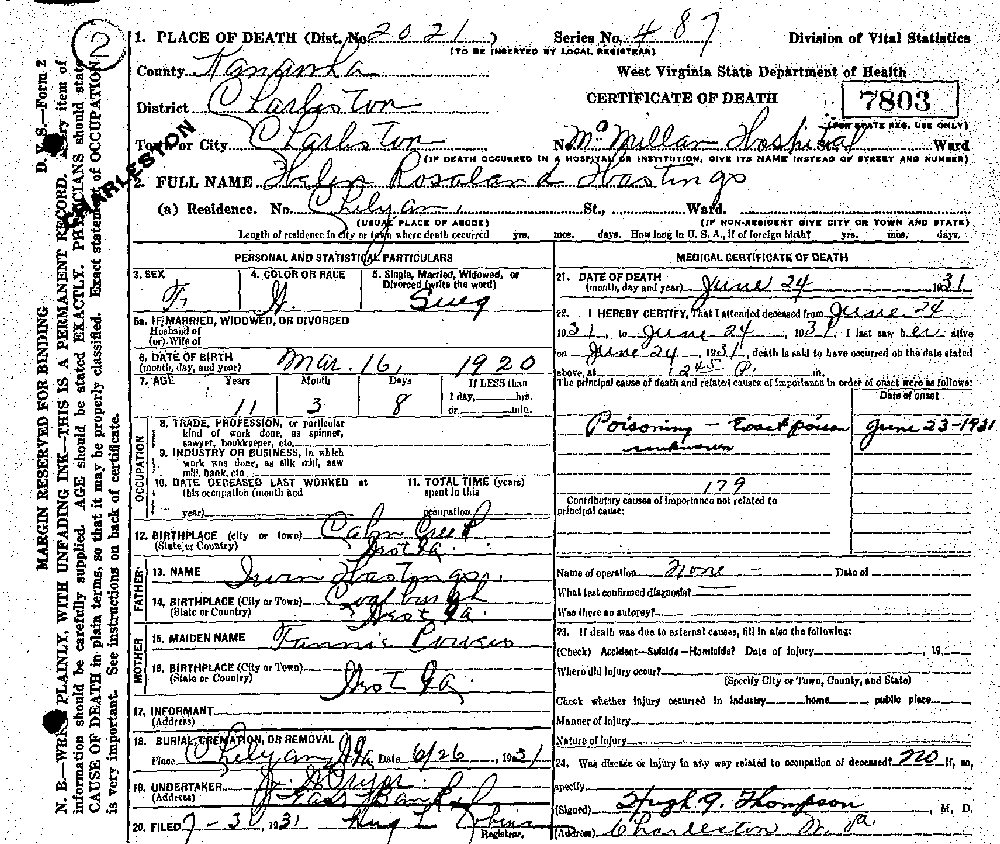 2
1. PLACE OF DEATH (Dist. No. 2021 )
Series No. 487
(TO BE INSERTED BY LOCAL REGISTRAR)
Division of Vital Statistics
County Kanawha
West Virginia State Department of Health
District Charleston
CERTIFICATE OF DEATH
7803
(FOR STATE REG. USE ONLY)
Town or City Charleston
No. McMillan Hospital Ward
(IF DEATH OCCURRED IN A HOSPITAL OR INSTITUTION, GIVE ITS NAME INSTEAD OF STREET AND NUMBER)
CHARLESTON
2. FULL NAME Helen Rosaland Hastings
(a) Residence. No. Chelyan, St., Ward.
(USUAL PLACE OF ABODE)
(IF NON-RESIDENT GIVE CITY OR TOWN AND STATE)
Length of residence in city or town where death occurred yrs. mos. days. How long in U. S. A., if of foreign birth? yrs. mos. days.
PERSONAL AND STATISTICAL PARTICULARS
3. SEX
4. COLOR OR RACE
5. Single, Married, Widowed, or
Divorced (write the word)
F.
5a. IF MARRIED, WIDOWED, OR DIVORCED
Husband of
(or) Wife of
6. DATE OF BIRTH
(month, day, and year) Mar. 16, 1920
7. AGE Years Month Days If LESS than
1 day, hrs.
or min.
11 3 8
OCCUPATION
8. TRADE, PROFESSION, or particular
kind of work done, as spinner,
sawyer, bookkeeper, etc.
9. INDUSTRY OR BUSINESS, in which
work was done, as silk mill, saw
mill, bank, etc.
10. DATE DECEASED LAST WORKED at
this occupation (month and
year)
11. TOTAL TIME (years)
spent in this
occupation
12. BIRTHPLACE (city or town) Cabin Creek
(State or Country) West Va.
FATHER
13. NAME Irvin Hastings
14. BIRTHPLACE (City or Town) Coalburgh
(State or Country) West Va.
MOTHER
15. MAIDEN NAME Fannie
16. BIRTHPLACE (City or Town)
(State or Country) West Va.
17. INFORMANT
(Address)
18. BURIAL, CREMATION, OR REMOVAL
Place Chelyan, W. Va. Date 6/26, 1931
19. UNDERTAKER
(Address) East Bank
20. FILED 7-3, 1931
Registrar.
MEDICAL CERTIFICATE OF DEATH
21. DATE OF DEATH
(month, day and year) June 24 1931
22. I HEREBY CERTIFY, That I attended deceased from June 24
1931, to June 24, 1931. I last saw her alive
on June 24, 1931, death is said to have occurred on the date stated
above, at 1245 P. m.
The principal cause of death and related causes of importance in order of onset were as follows:
Date of onset
Poisoning - Exact poison June 23-1931
unknown
179
Contributory causes of importance not related to
principal cause:
Name of operation none Date of
What test confirmed diagnosis?
Was there an autopsy?
23. If death was due to external causes, fill in also the following:
(Check) Accident—Suicide—Homicide? Date of injury, 19
Where did injury occur?
(Specify City or Town, County, and State)
Check whether injury occurred in industry home public place
Manner of Injury
Nature of Injury
24. Was disease or injury in any way related to occupation of deceased? no If, so,
specify
(Signed) Hugh G. Thompson, M. D.
(Address) Charleston W. Va.
MARGIN RESERVED FOR BINDING
D. V. S.—Form 2
N. B.—WRITE PLAINLY, WITH UNFADING INK—THIS IS A PERMANENT RECORD. Every item of
information should be carefully supplied. AGE should be stated EXACTLY. PHYSICIANS should state
CAUSE OF DEATH in plain terms, so that it may be properly classified. Exact statement of OCCUPATION
is very important. See instructions on back of certificate.